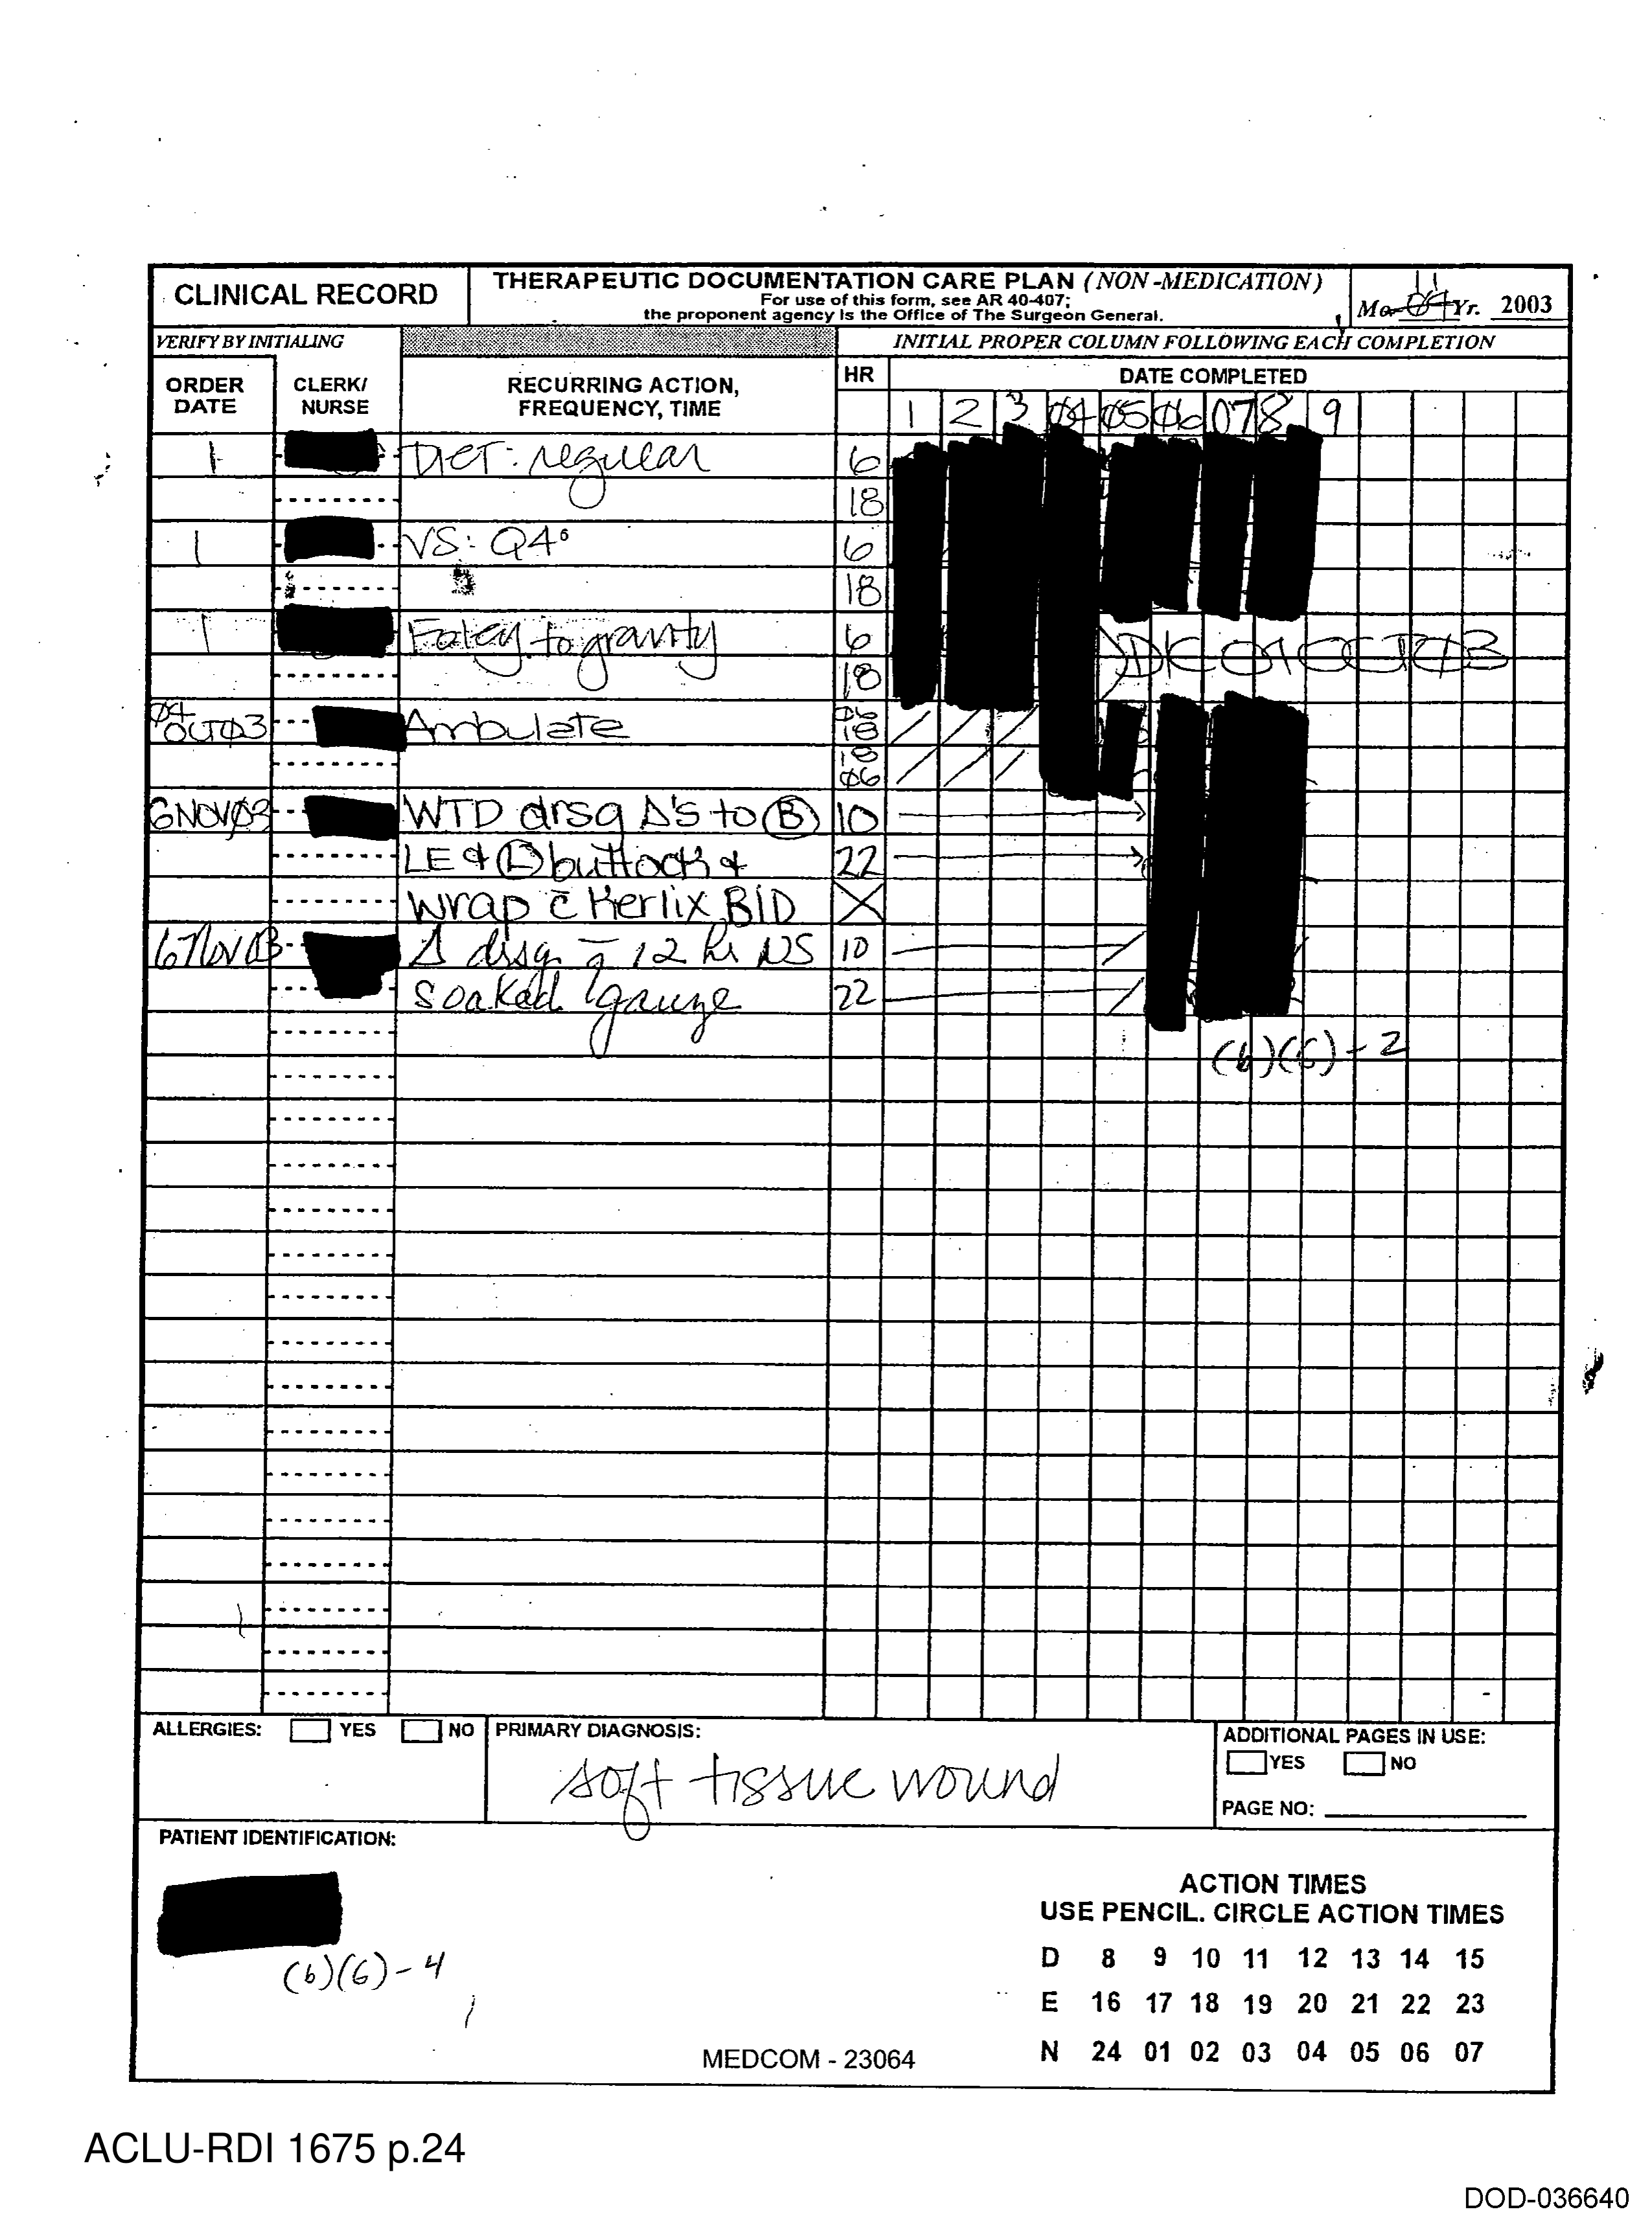 CLINICAL RECORD
THERAPEUTIC DOCUMENTATION CARE PLAN (NON-MEDICATION)
For use of this form, see AR 40-407;
the proponent agency is the Office of The Surgeon General.
11
Mo. 04 Yr. 2003
VERIFY BY INITIALING
INITIAL PROPER COLUMN FOLLOWING EACH COMPLETION
ORDER DATE
CLERK/ NURSE
RECURRING ACTION, FREQUENCY, TIME
HR
DATE COMPLETED
1 2 3 04 05 06 07 8 9
1 DIET: regular 6
18
1 VS: Q4° 6
18
1 Foley to gravity 6
18
04 OCT03 Ambulate 06 18
18 06
6NOV03 WTD drsg Δ's to Ⓑ 10
LE & Ⓛ buttock & 22
wrap c̄ Kerlix BID
6 Nov 03 Δ drsg q 12 hr NS 10
soaked gauze 22
(b)(6)-2
ALLERGIES: YES NO
PRIMARY DIAGNOSIS:
soft tissue wound
ADDITIONAL PAGES IN USE:
YES NO
PAGE NO:
PATIENT IDENTIFICATION:
(b)(6)-4
ACTION TIMES
USE PENCIL. CIRCLE ACTION TIMES
D 8 9 10 11 12 13 14 15
E 16 17 18 19 20 21 22 23
N 24 01 02 03 04 05 06 07
MEDCOM - 23064
ACLU-RDI 1675 p.24
DOD-036640